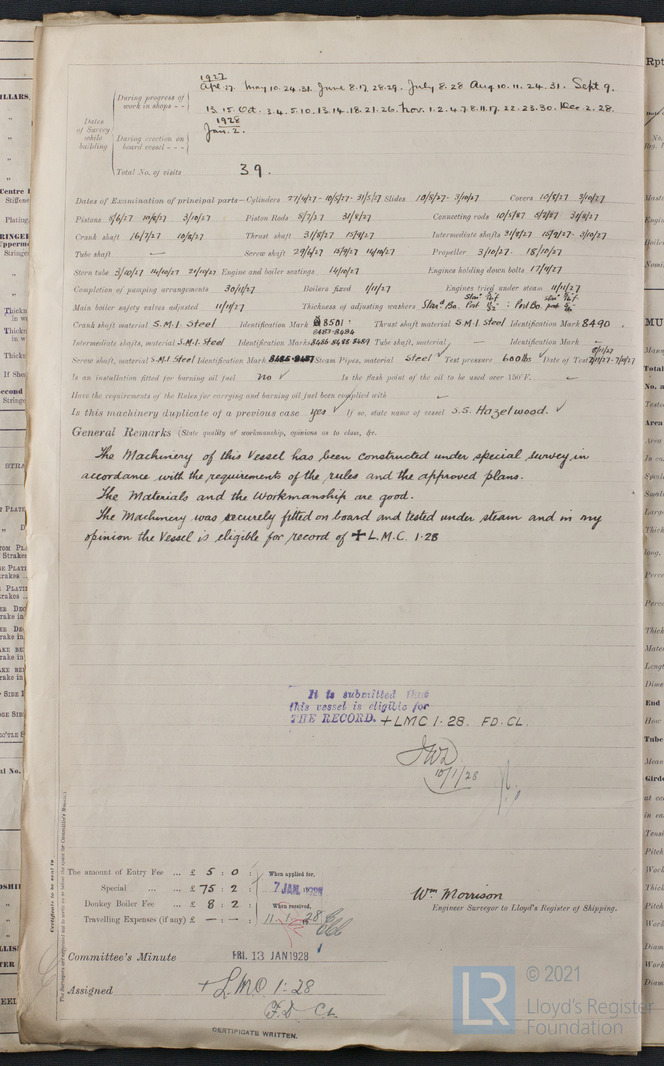 1927
Apr. 27. May 10. 24. 31. June 8. 17. 28. 29. July 8. 28 Aug 10. 11. 24. 31. Sept 9.
During progress of work in shops - -
13. 15. Oct. 3. 4. 5. 10. 13. 14. 18. 21. 26. Nov. 1. 2. 4. 7. 8. 11. 17. 22. 23. 30. Dec 2. 28.
1928
Jan. 2.
Dates of Survey while building
During erection on board vessel - - -
Total No. of visits 39.
Dates of Examination of principal parts—Cylinders 27/4/27 - 10/5/27 - 31/5/27 Slides 10/8/27 - 3/10/27 Covers 10/8/27 3/10/27
Pistons 8/6/27 10/8/27 3/10/27 Piston Rods 8/7/27 31/8/27 Connecting rods
Crank shaft 16/7/27 10/8/27 Thrust shaft 31/8/27 15/9/27 Intermediate shafts 31/8/27 15/9/27 - 3/10/27
Tube shaft — Screw shaft 29/6/27 15/9/27 14/10/27 Propeller 3/10/27 - 18/10/27
Stern tube 3/10/27 14/10/27 21/10/27 Engine and boiler seatings 14/10/27 Engines holding down bolts 17/11/27
Completion of pumping arrangements 30/11/27 Boilers fixed 1/11/27 Engines tried under steam 11/11/27
Main boiler safety valves adjusted 11/11/27 Thickness of adjusting washers Star'd Bo. Port : Port Bo.
Crank shaft material S.M.I. Steel Identification Mark 8501 Thrust shaft material S.M.I. Steel Identification Mark 8490.
8483-8484
Intermediate shafts, material S.M.I. Steel Identification Marks 8486-8488-8489 Tube shaft, material — Identification Mark —
Screw shaft, material S.M.I. Steel Identification Mark 8485-8487 Steam Pipes, material Steel ✓ Test pressure 600 lbs ✓ Date of Test
Is an installation fitted for burning oil fuel No ✓ Is the flash point of the oil to be used over 150°F. —
Have the requirements of the Rules for carrying and burning oil fuel been complied with —
Is this machinery duplicate of a previous case yes ✓ If so, state name of vessel S.S. Hazelwood. ✓
General Remarks (State quality of workmanship, opinions as to class, &c.
The Machinery of this Vessel has been constructed under special survey in
accordance with the requirements of the rules and the approved plans.
The Materials and the Workmanship are good.
The Machinery was securely fitted on board and tested under steam and in my
opinion the Vessel is eligible for record of ✠ L.M.C. 1·28
It is submitted that
this vessel is eligible for
THE RECORD. + LMC 1·28. FD. CL.
JWD
10/1/28
The amount of Entry Fee ... £ 5 : 0 :
Special ... ... £ 75 : 2 :
Donkey Boiler Fee ... £ 8 : 2 :
Travelling Expenses (if any) £ — : — :
When applied for,
7 JAN 1928
When received,
11.1.28
Wm Morrison
Engineer Surveyor to Lloyd's Register of Shipping.
Committee's Minute FRI. 13 JAN 1928
Assigned + LMC 1:28
F.D. CL.
CERTIFICATE WRITTEN.
Certificate to be sent to
© 2021
LR
Lloyd's Register
Foundation